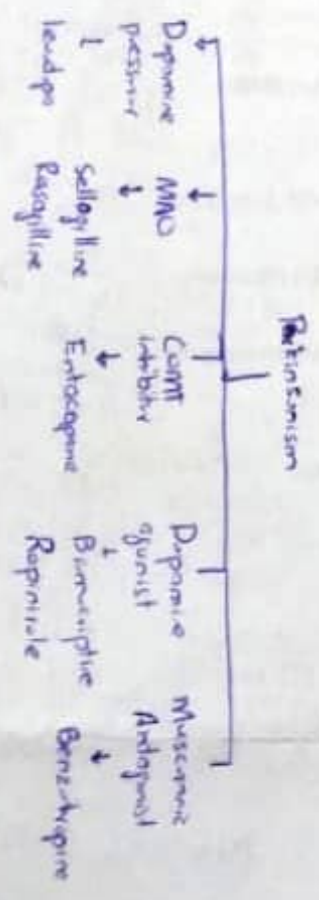 Parkinsonism
Dopamine
pressor
levodopa
MAO
Sellogilline
Rasagilline
COMT
inhibitor
Entocapone
Dopamine
agonist
Bromocriptine
Ropinirole
Muscarinic
Antagonist
Benzotropine